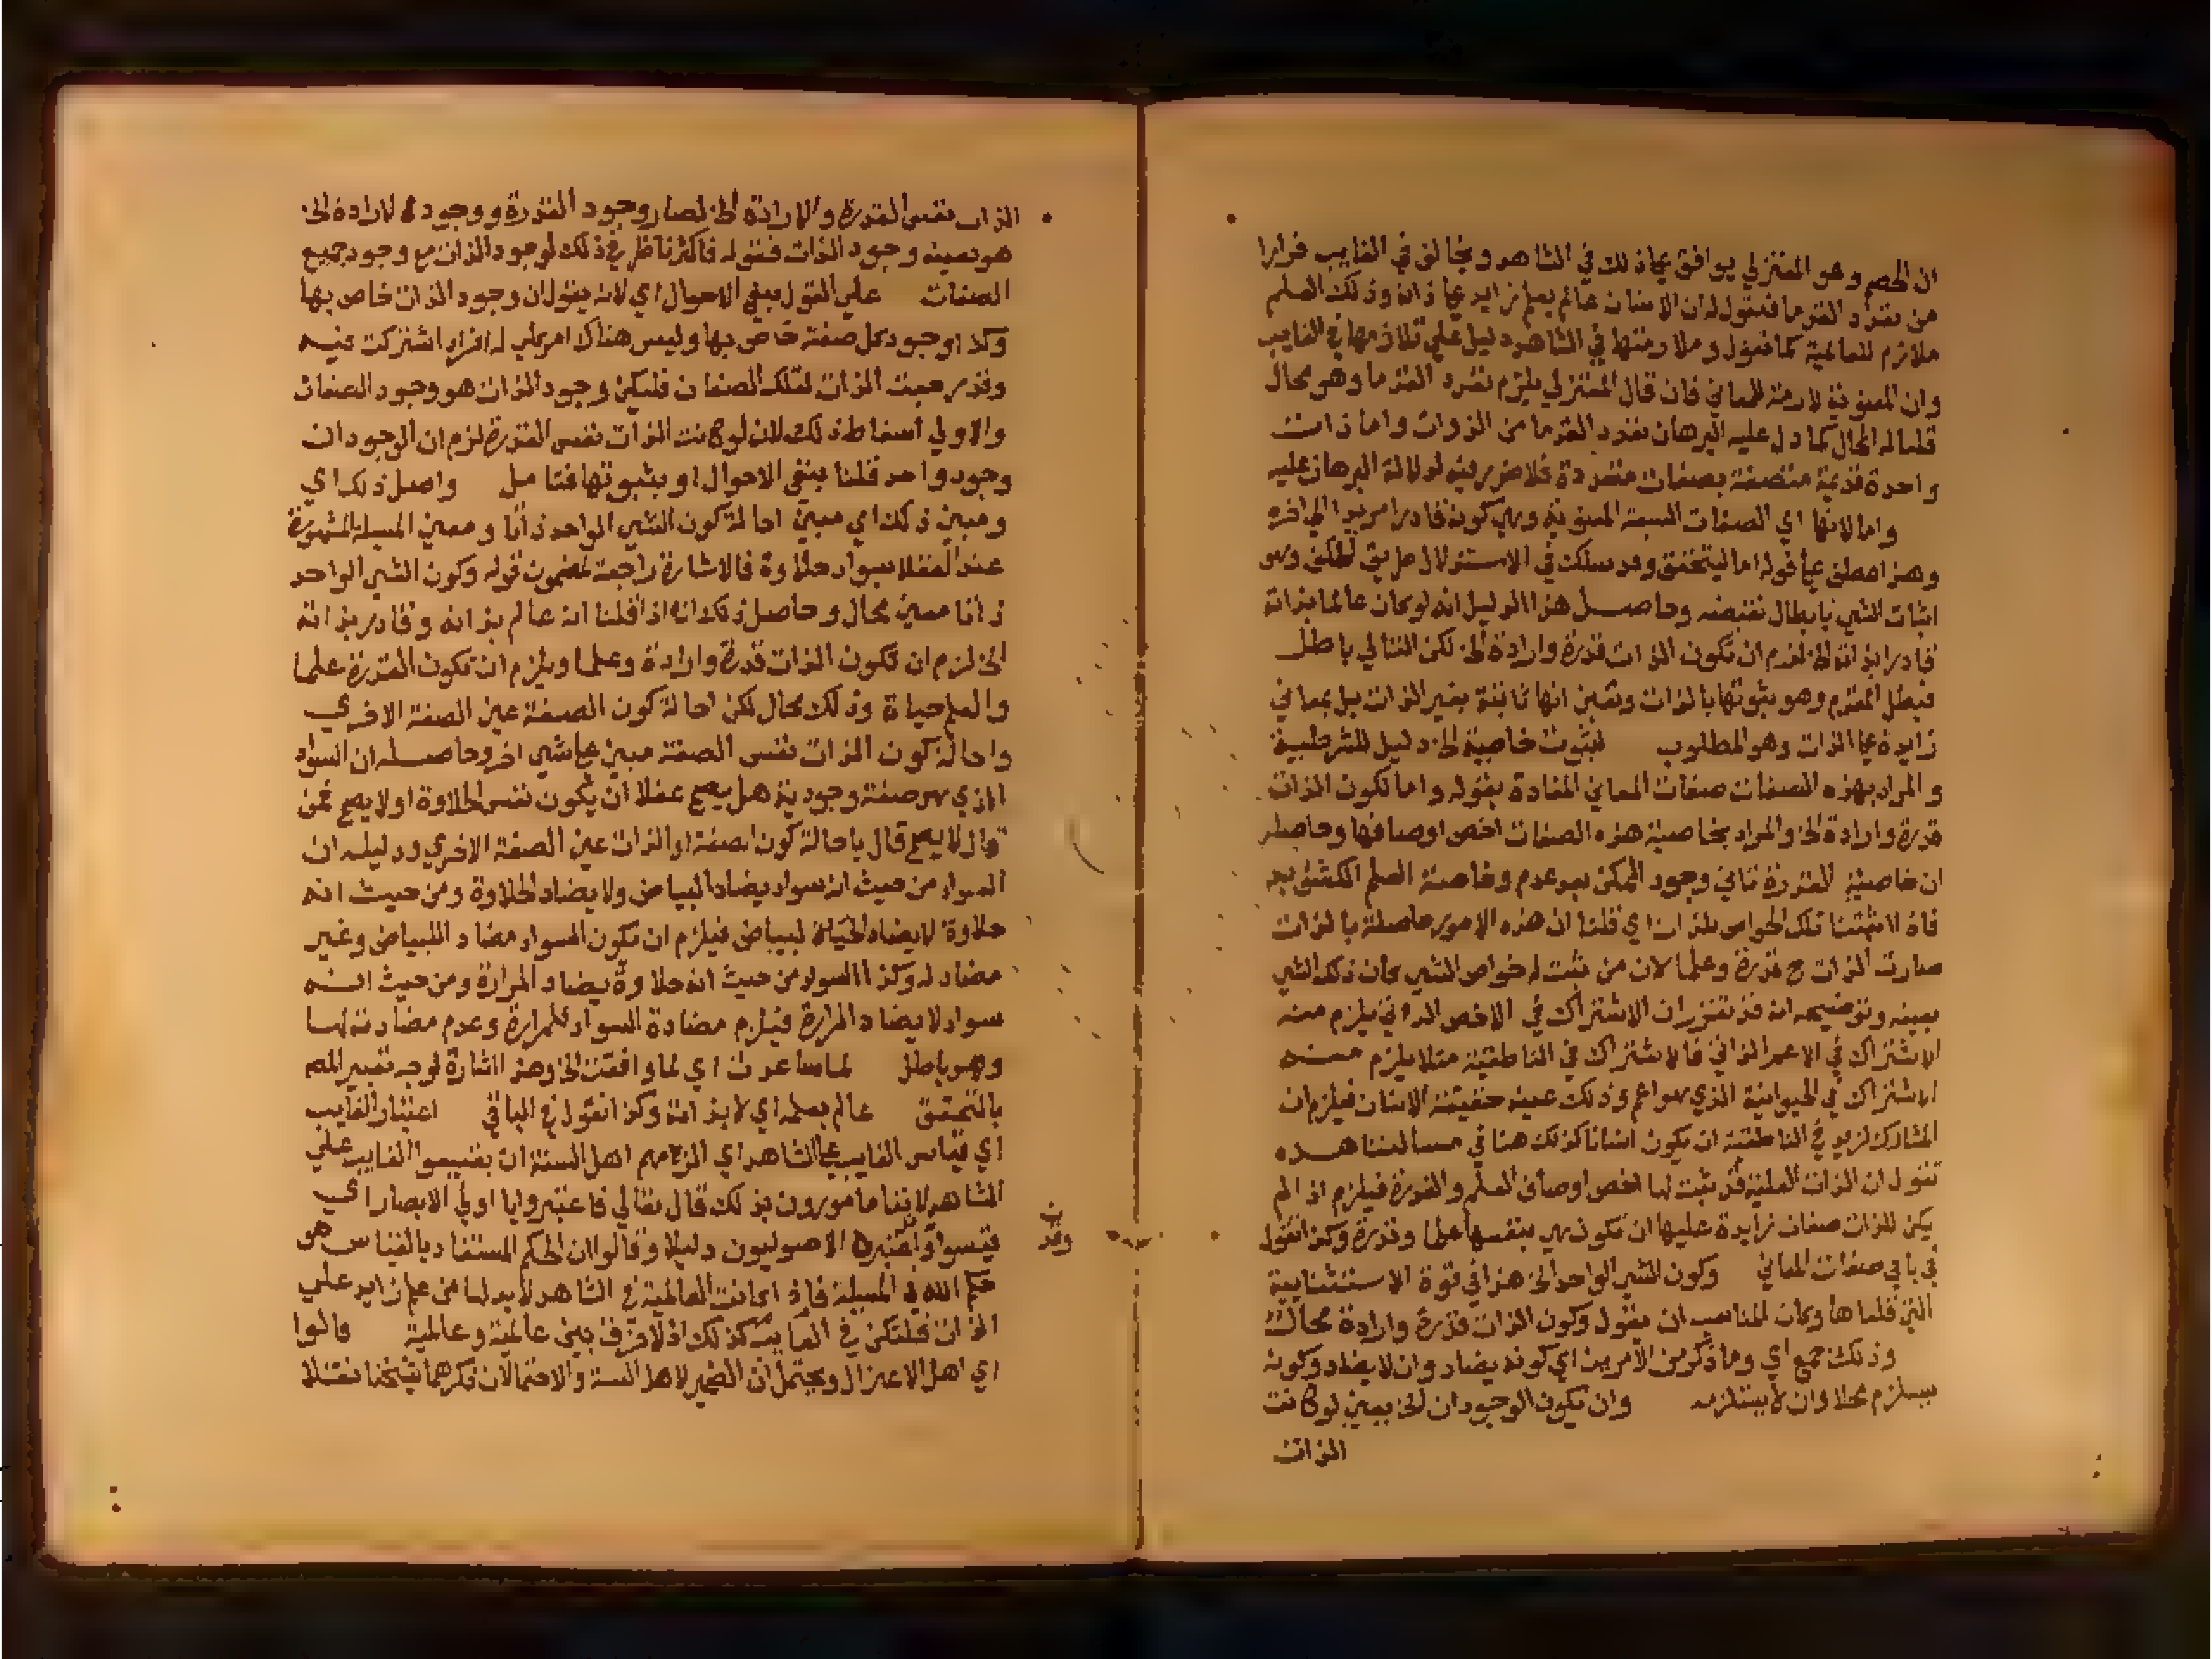 ان الخصم وهو المعتزلي يوافق على ذلك في الشاهد ويخالف في الغايب فرارا
من تعدد القدما فنقول له ان الانسان عالم بعلم زايد على ذاته وذلك العلم
ملازم للعالمية كما نقول وملازمتها في الشاهد دليل على تلازمها في الغايب
وان المعنوية لازمة للمعاني فان قال المعتزلي يلزم تعدد القدما وهو محال
قلنا له المحال كما دل عليه البرهان تعدد القدما من الذوات واما ذات
واحدة قديمة متصفة بصفات متعددة فلا ضرر فيه لدلالة البرهان عليه
واما لانها اي الصفات السبعة المعنوية وهي كونه قادرا مريدا الى اخره
وهذا عطف على قوله اما ليتحقق وقد سلك في الاستدلال طريق الخلف وهو
اثبات الشي بابطال نقيضه وحاصل هذا الدليل انه لو كان عالما بذاته
قادرا بذاته الخ لزم ان تكون الذات قدرة وارادة الخ لكن التالي باطل
فبطل المقدم وهو ثبوتها بالذات وتعين انها ثابتة بغير الذات بل بمعاني
زايدة على الذات وهو المطلوب لثبوت خاصية الخ دليل للشرطية
والمراد بهذه الصفات صفات المعاني المفادة بقوله واما تكون الذات
قدرة وارادة الخ والمراد بخاصية هذه الصفات اخص اوصافها وحاصله
ان خاصية القدرة تاتي وجود الممكن بعد عدم وخاصية العلم الكشف به
فاذا اثبتنا تلك الخواص للذات اي قلنا ان هذه الامور حاصلة بالذات
صارت الذات ح قدرة وعلما لان من ثبت له خواص الشي كان ذلك الشي
بعينه وتوضيحه انه قد تقرر ان الاشتراك في الاخص الذاتي يلزم منه
الاشتراك في الاعم الذاتي فالاشتراك في الناطقية مثلا يلزم منه
الاشتراك في الحيوانية الذي هو اعم وذلك عين حقيقة الانسان فيلزم ان
المشارك لزيد في الناطقية ان يكون انسانا كذلك هنا في مسالتنا هذه
نقول ان الذات العلية قد ثبت لها اخص اوصاف العلم والقدرة فيلزم اذا لم
يكن للذات صفات زايدة عليها ان تكون هي بنفسها علما وقدرة وكذا نقول
في باقي صفات المعاني وكون الشي الواحد الخ هذا في قوة الاستثنايية
التي قلناها وكان المناسب ان يقول وكون الذات قدرة وارادة محال
وذلك جمع اي وما ذكر من الامرين اي كونه يضاد وان لا يضاد وكونه
يستلزم محلا وان لا يستلزمه وان يكون الوجودان الخ يعني لو كانت
الذات
الذات نفس القدرة والارادة الخ لصار وجود القدرة ووجود الارادة الخ
هو بعينه وجود الذات فقوله فاكثر ناظر في ذلك لوجود الذات مع وجود جميع
الصفات على القول بنفي الاحوال اي لانه يقول ان وجود الذات خاص بها
وكذا وجود كل صفة خاص بها وليس هناك امر كلي له افراد اشتركت فيه
وقد رجعت الذات لتلك الصفات فليكن وجود الذات هو وجود الصفات
والاولى اسقاط ذلك لانه لو كانت الذات نفس القدرة لزم ان الوجودان
وجود واحد قلنا بنفي الاحوال او بثبوتها فتامل واصل ذلك اي
ومبين ذلك اي مبين احالة كون الشي الواحد ذاتا ومعنى المسيلة المشهورة
عند العقلا بسواد حلاوة فالاشارة راجعة لمضمون قوله وكون الشي الواحد
ذاتا معنى محال وحاصل ذلك انه اذا قلنا انه عالم بذاته وقادر بذاته
الخ لزم ان تكون الذات قدرة وارادة وعلما ويلزم ان تكون القدرة علما
والعلم حياة وذلك محال لكن احالة كون الصفة عين الصفة الاخرى
واحالة كون الذات نفس الصفة مبين على شي اخر وحاصله ان السواد
الذي هو صفة وجودية هل يصح عقلا ان يكون نفس الحلاوة او لا يصح فمن
قال لا يصح قال باحالة كون الصفة او الذات عين الصفة الاخرى ودليله ان
السواد من حيث انه سواد يضاد البياض ولا يضاد الحلاوة ومن حيث انه
حلاوة لا يضاد البياض فيلزم ان يكون السواد مضاد للبياض وغير
مضاد له وكذا السواد من حيث انه حلاوة يضاد المرارة ومن حيث انه
سواد لا يضاد المرارة فيلزم مضادة السواد للمرارة وعدم مضادته لها
وهو باطل لما ساعدت اي لما وافقت الخ وهذا اشارة لوجه تعبير المص
بالتحقق عالم بعلمه اي لا بذاته وكذا نقول في الباقي اعتبار الغايب
اي قياس الغايب على الشاهد اي الزمهم اهل السنة ان يقيسوا الغايب على
الشاهد لاننا مامورون بذلك قال تعالى فاعتبروا يا اولي الابصار اي
قيسوا واعتبره الاصوليون دليلا وقالوا ان الحكم المستفاد بالقياس هو
حكم الله في المسيلة فاذا كانت العالمية في الشاهد لا بد لها من علم زايد على
الذات فلتكن في الغايب كذلك اذ لا فرق بين عالمية وعالمية قالوا
اي اهل الاعتزال ويحتمل ان الضمير لاهل السنة والاحتمالان ذكرهما شيخنا نقلا